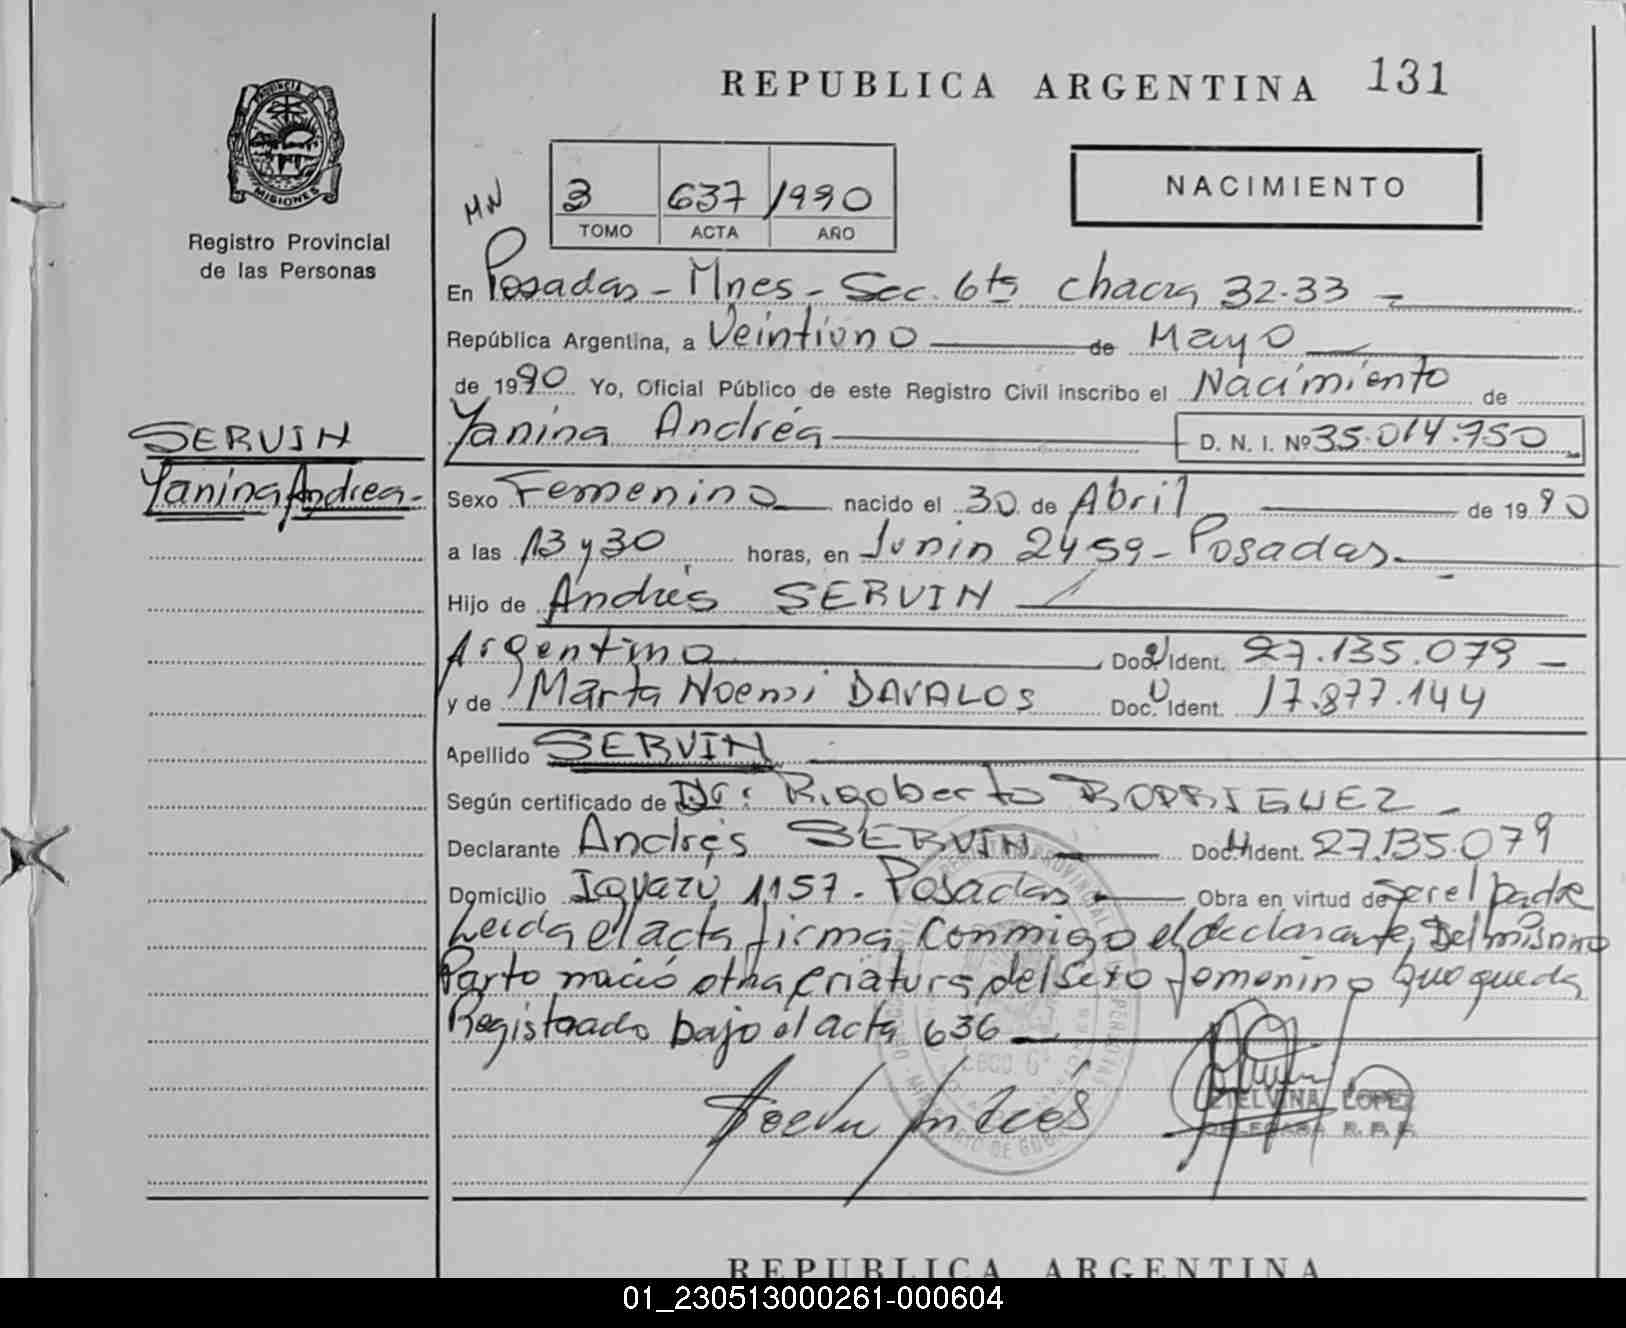 REPUBLICA ARGENTINA 131
PROVINCIA DE
MISIONES
Registro Provincial
de las Personas
NACIMIENTO
MN
3 637 1990
TOMO ACTA AÑO
En Posadas - Mnes - Sec. 6ta chacra 32-33 -
República Argentina, a Veintiuno de Mayo
de 1990 Yo, Oficial Público de este Registro Civil inscribo el Nacimiento de
Yanina Andréa D. N. I. Nº 35.014.750
SERVIN
Yanina Andrea -
Sexo Femenino nacido el 30 de Abril de 1990
a las 13 y 30 horas, en Junin 2459 - Posadas
Hijo de Andrés SERVIN
Argentino Doc. Ident. 27.135.079 -
y de Marta Noemi DAVALOS Doc. Ident. 17.877.144
Apellido SERVIN
Según certificado de Dr: Rigoberto RODRIGUEZ -
Declarante Andrés SERVIN Doc. Ident. 27.135.079
Domicilio Iguazú 1157 - Posadas - Obra en virtud de ser el padre
Leida el acta firma conmigo el declarante, Del mismo
Parto nació otra criatura del sexo femenino que queda
Registrado bajo el acta 636
ETELVINA LOPEZ
DELEGADA R. P. P.
REPUBLICA ARGENTINA
01_230513000261-000604